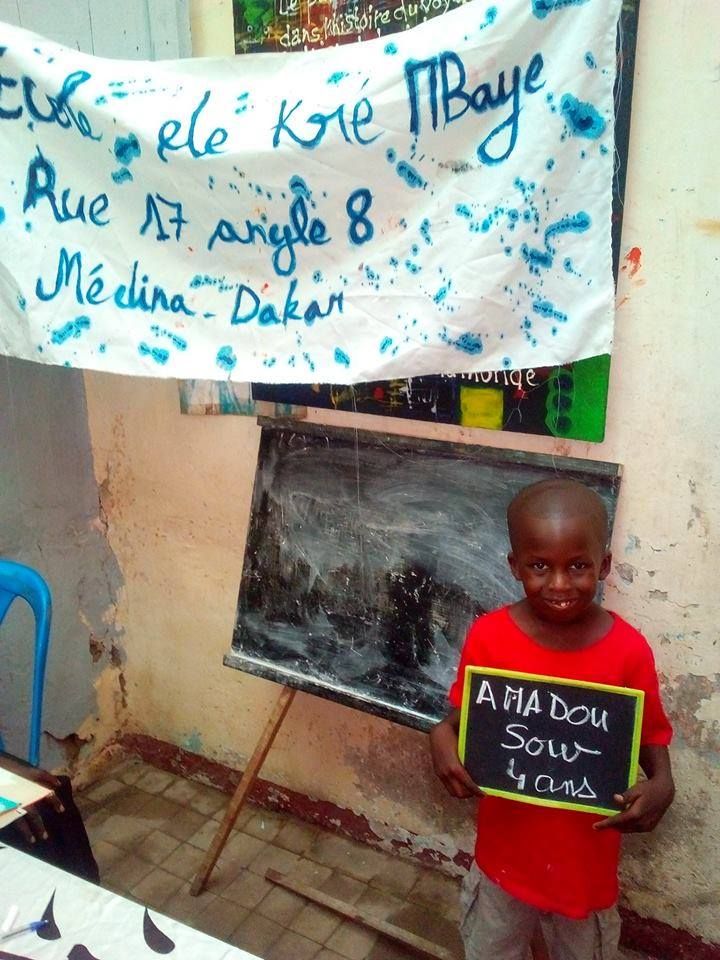 Le
dans l'histoire du
École de Kré MBaye
Rue 17 angle 8
Médina - Dakar
monde
AMADOU
Sow
4 ans